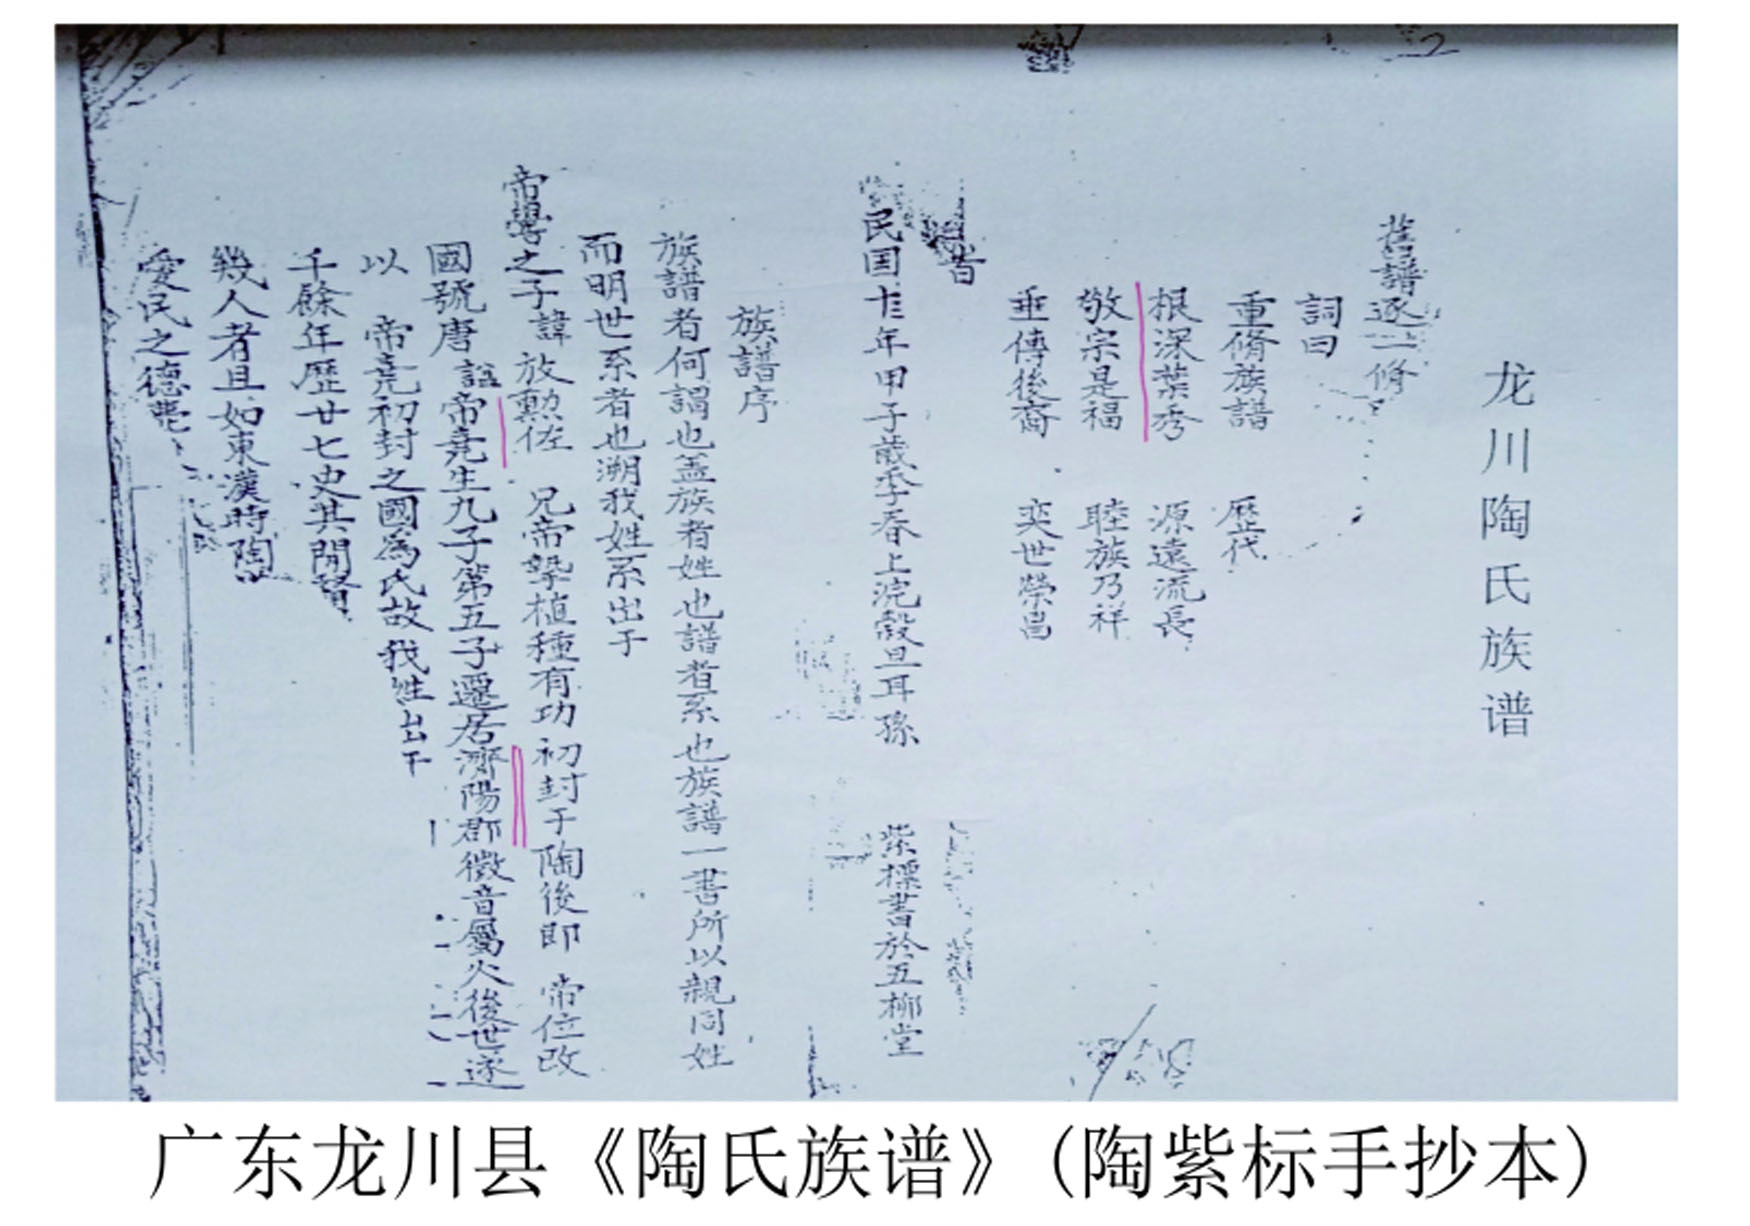 龙川陶氏族谱
舊譜逐一脩
詞曰
重脩族譜 歷代
根深葉秀 源遠流長
敬宗是福 睦族乃祥
垂傳後裔 奕世榮昌
民国十三年甲子歲季春上浣穀旦耳孫 紫標書於五柳堂
族譜序
族譜者何謂也蓋族者姓也譜者系也族譜一書所以親同姓
而明世系者也溯我姓系出于
帝嚳之子諱放勳佐 兄帝摯植種有功初封于陶後即 帝位改
國號唐 諡帝堯生九子第五子遷居濟陽郡徵音屬火後世遂
以 帝堯初封之國為氏故我姓出于
千餘年歷廿七史其間賢
幾人者且如東漢時陶
愛民之德
广东龙川县《陶氏族谱》(陶紫标手抄本)